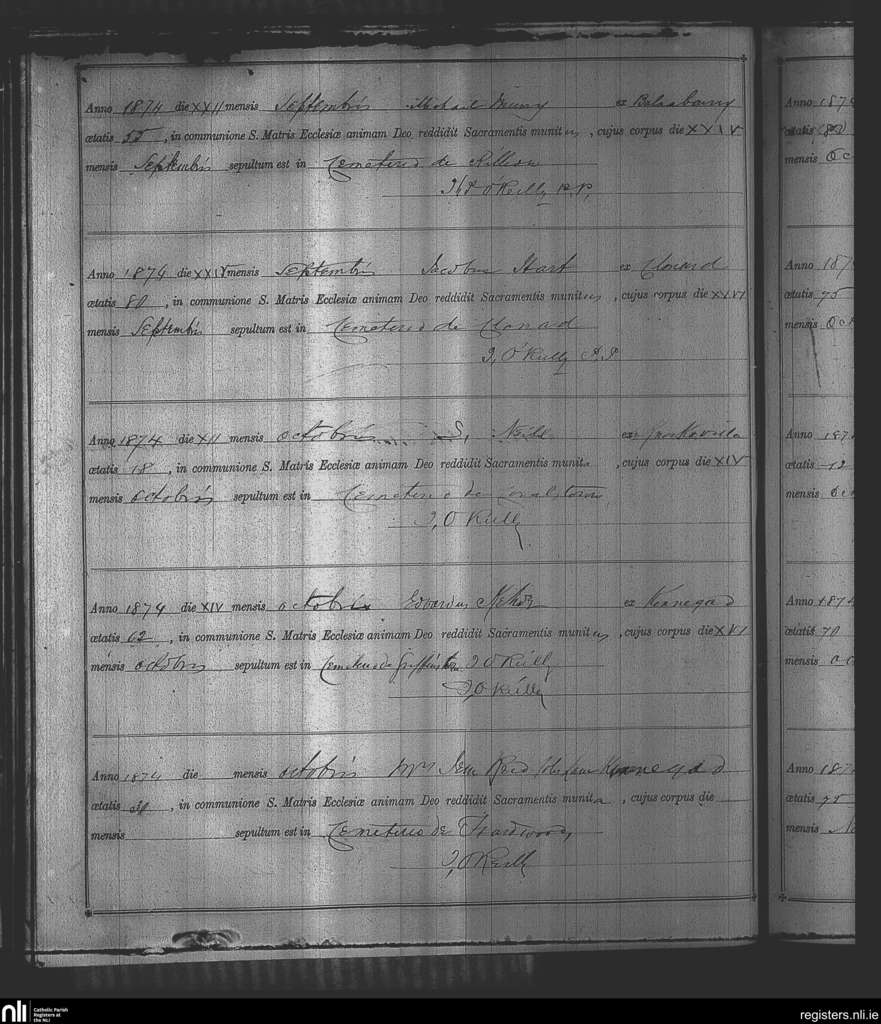 Anno 1874 die XXII mensis Septembris Michael ex
ætatis 55, in communione S. Matris Ecclesiæ animam Deo reddidit Sacramentis munitus, cujus corpus die XXIV
mensis Septembris sepultum est in Cemeterio de Killion
O'Reilly P.P.
Anno 1874 die XXIV mensis Septembris Jacobus Hart ex Clonard
ætatis 80, in communione S. Matris Ecclesiæ animam Deo reddidit Sacramentis munitus, cujus corpus die XXVI
mensis Septembris sepultum est in Cemeterio de Clonard
J, O'Reilly P.P
Anno 1874 die XII mensis octobris S, Neill ex
ætatis 18, in communione S. Matris Ecclesiæ animam Deo reddidit Sacramentis munita, cujus corpus die XIV
mensis octobris sepultum est in Cemeterio de Coralstown
J, O Reilly
Anno 1874 die XIV mensis octobris Edvardus Kehoe ex Kinnegad
ætatis 62, in communione S. Matris Ecclesiæ animam Deo reddidit Sacramentis munitus, cujus corpus die XVI
mensis octobris sepultum est in J O Reilly
J, O Reilly
Anno 1874 die mensis octobris Mrs Reid Kinnegad
ætatis 30, in communione S. Matris Ecclesiæ animam Deo reddidit Sacramentis munita, cujus corpus die
mensis sepultum est in Cemeterio de Hardwood
J, O Reilly
Anno 187
ætatis
mensis Oc
Anno 187
ætatis 75
mensis Oct
Anno 187
ætatis 12
mensis Oc
Anno 1874
ætatis 70
mensis oc
Anno 187
ætatis 75
mensis No
nli Catholic Parish
Registers at
the NLI
registers.nli.ie